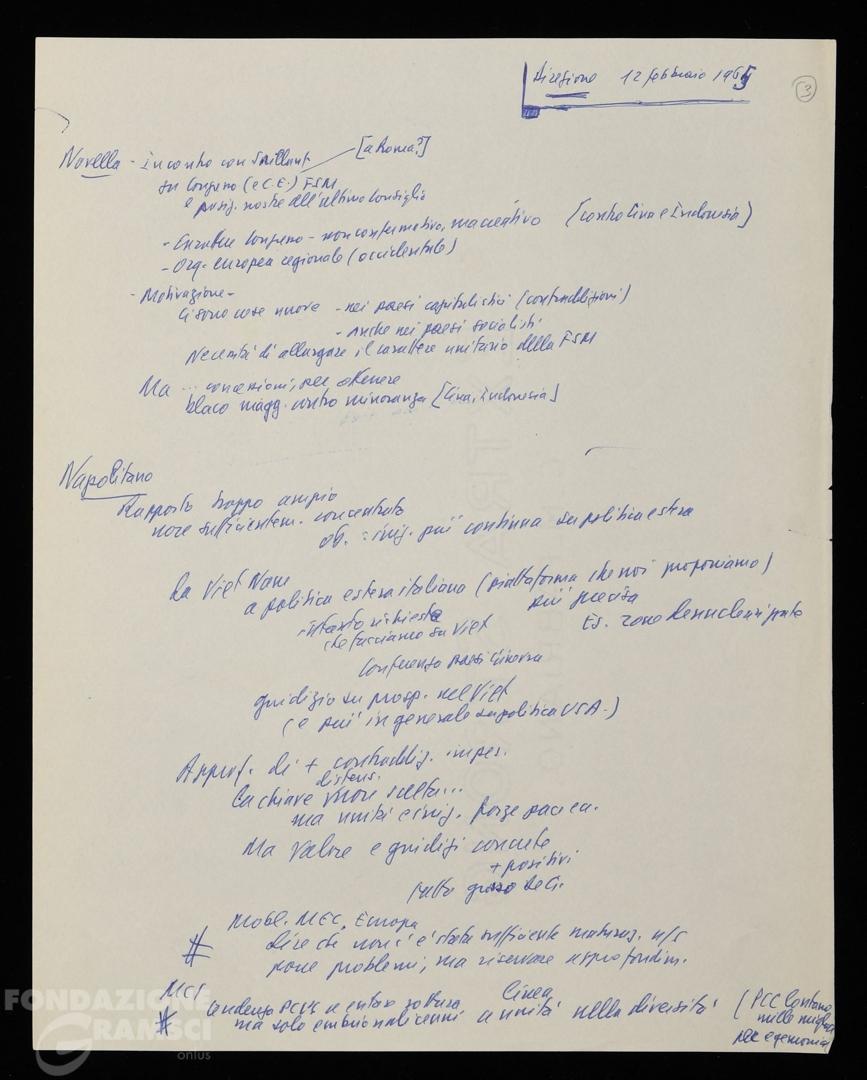 Direzione 12 febbraio 1965
3
Novella - incontro con Saillant [a Roma?]
su Congresso (e C.E.) FSM
e posiz. nostre all'ultimo Consiglio
- Carattere Congresso - non confermativo, ma creativo [contro Cina e Indonesia]
- Org. europea regionale (occidentale)
- Motivazione -
Ci sono cose nuove - nei paesi capitalistici (contraddizioni)
- anche nei paesi socialisti
Necessità di allargare il carattere unitario della FSM
Ma ... concessioni, per ottenere
blocco magg. contro minoranza [Cina, Indonesia]
Napolitano
Rapporto troppo ampio
non sufficientem. concentrato
ob. iniz. più continua su politica estera
Da Viet Nam
a politica estera italiana (piattaforma che noi proponiamo)
più precisa
intanto richiesta
che facciamo su Viet
Es. zone denuclearizzate
Conferenza paesi Ginevra
giudizio su prosp. nel Viet
(e più in generale su politica USA.)
Approf. di + contraddiz. imper.
distens.
La chiave
ma unità e iniz. forze pace
Ma valore e giudizi concreti
+ positivi
fatto grosso
Mobl. MEC, Europa
# dire che non c'è stata sufficiente maturaz. n/s
pone problemi, ma riservare approfondim.
MCI
# tendenza PCUS a
ma solo embrionali cenni a unità nella diversità
linea
(PCC lontano
mille miglia
per egemonia)
FONDAZIONE
GRAMSCI
onlus